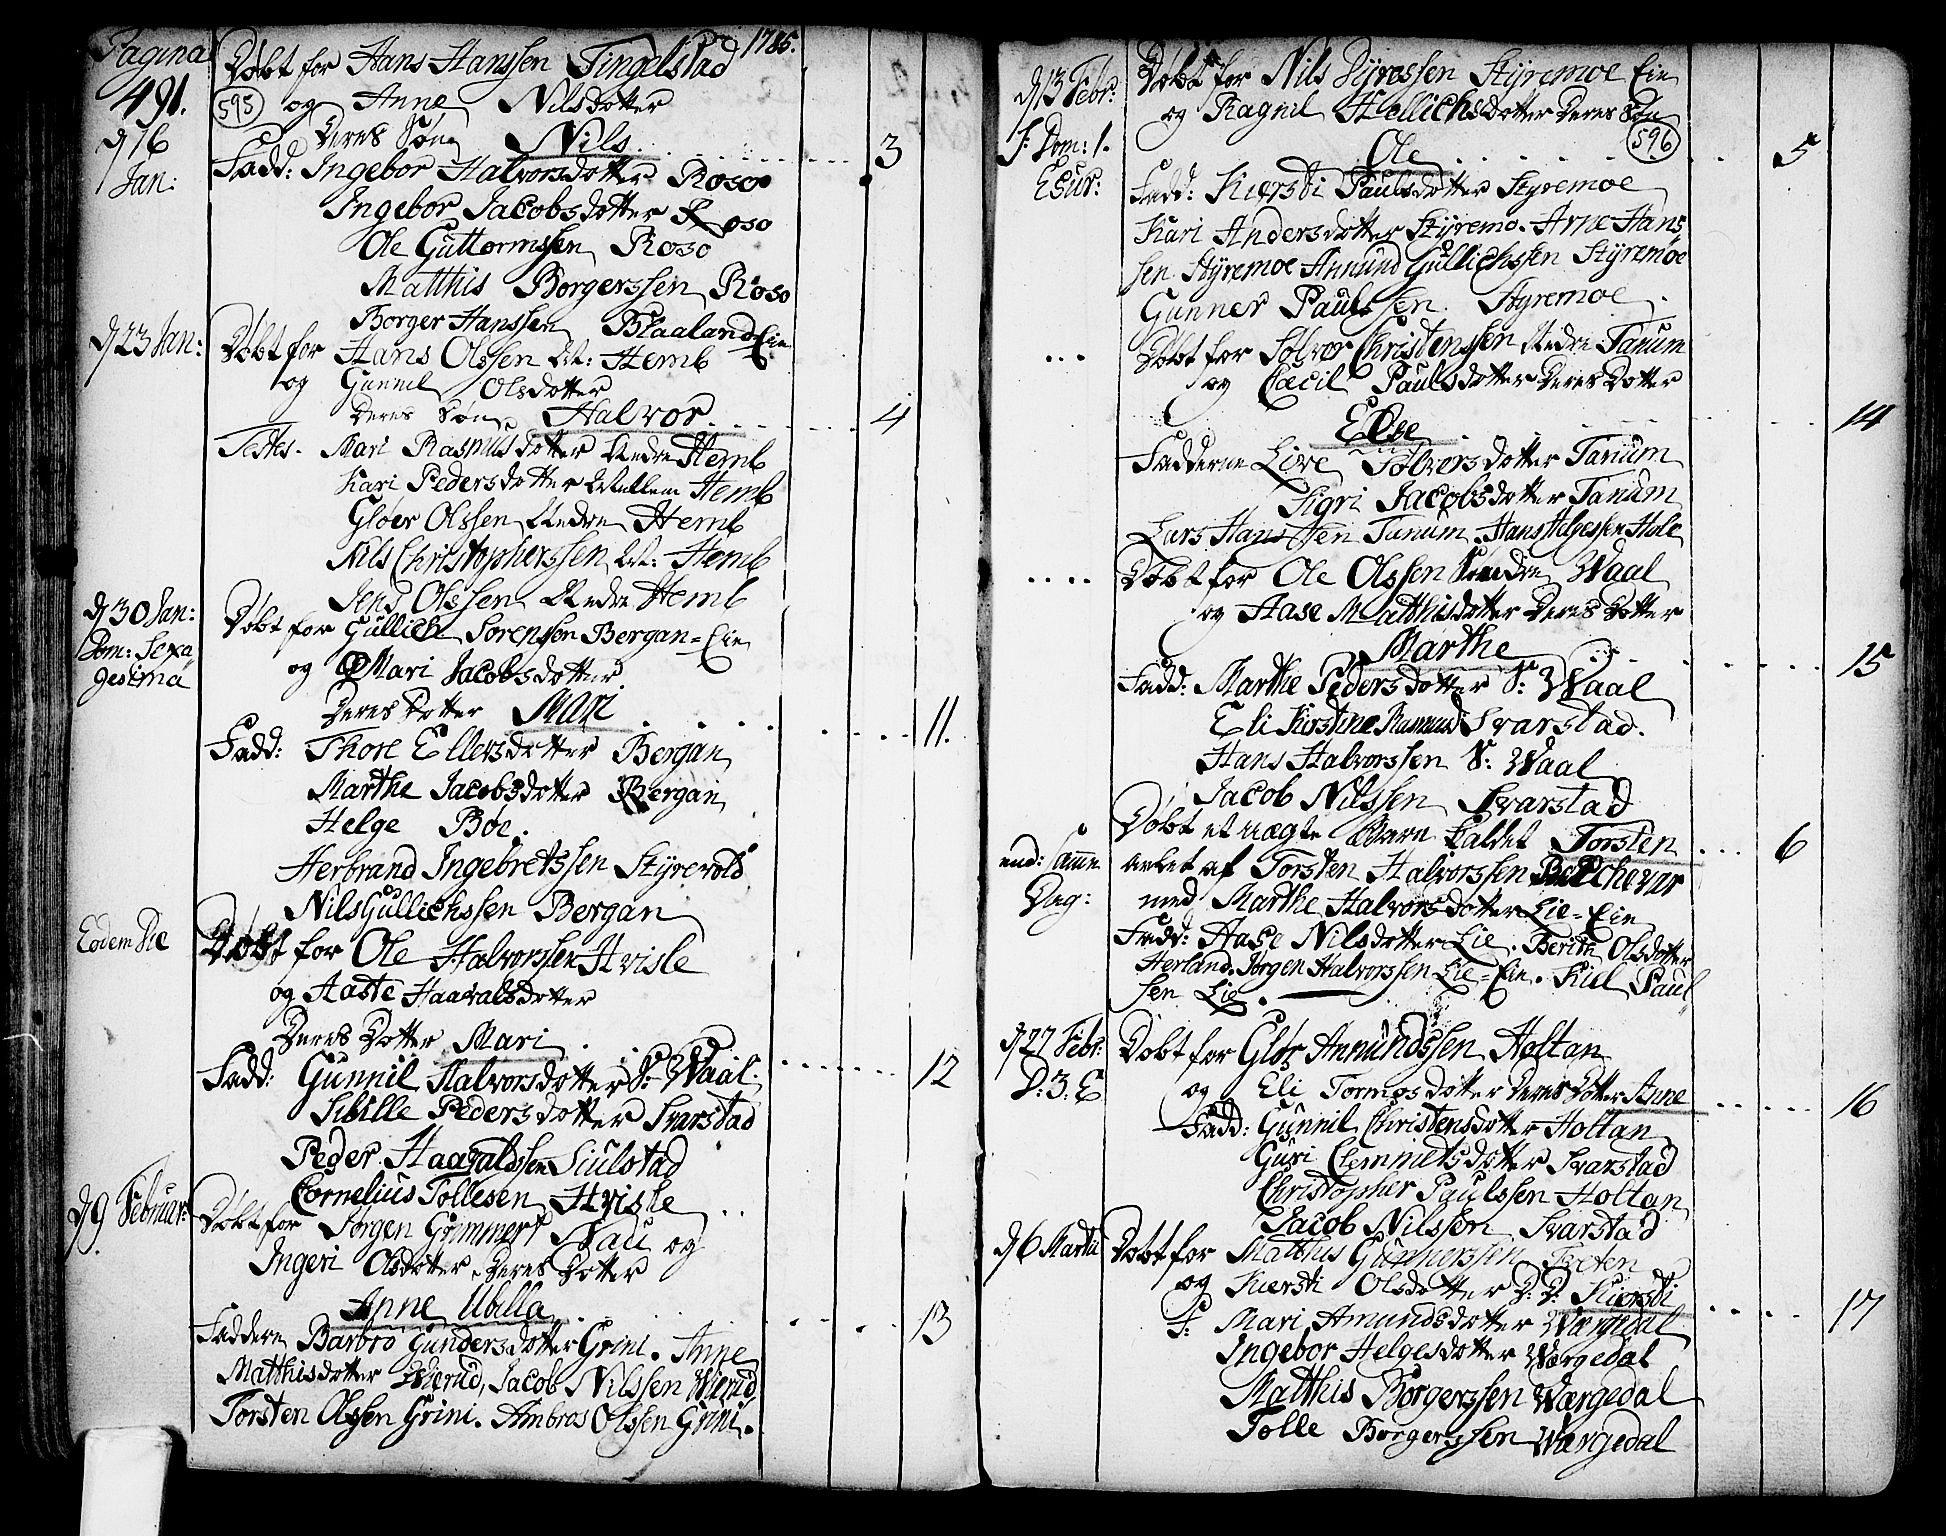 Pagina 491.
595
1785.
d 16 Jan:
Døbt for Hans Hanssen Tingelstad
og Anne Nilsdotter
Deres Søn Nils. 3
Fadd: Ingebor Halvorsdotter Roso
Ingebor Jacobsdotter Roso
Ole Guttormssen Roso
Matthis Borgerssen Roso
Borger Hanssen Blaaland Eie
d 23 Jan:
Døbt for Hans Olssen Hemb
og Gunnil Olsdotter
Deres Søn Halvor. 4
Testes. Mari Rasmusdotter Nedre Hemb
Kari Pedersdotter Mellem Hemb
Gloer Olssen Nedre Hemb
Nils Christopherssen Hemb
Jens Olssen Nedre Hemb
d 30 Jan:
Dom: Sexa
gesima
Døbt for Gullich Sorenssen Bergan=Eie
og Mari Jacobsdotter
Deres Dotter Mari 11.
Fadd: Thore Ellersdotter Bergan
Marthe Jacobsdotter Bergan
Helge Böe.
Herbrand Ingebretssen Styrevold
Nils Gullichssen Bergan
Eodem Die
Døbt for Ole Halvorssen Hvisle
og Aaste Haavalsdotter
Deres Dotter Mari 12
Fadd: Gunnil Halvorsdotter S: Waal.
Sibille Pedersdotter Svarstad
Peder Haavaldssen Siulstad
Cornelius Tollesen Hvisle
d 9 Februar:
Døbt for Jørgen Grimmert Nau og
Ingeri Olsdotter Deres Dotter
Anne Ubilla 13
Faddere Barbro Gundersdotter Grini. Anne
Matthisdotter Wierud, Jacob Nilssen Wierud
Torsten Olssen Grini. Ambros Olssen Grini.
d 13 Febr:
F: Dom: 1.
Esur:
Døbt for Nils Styremoe Eie
og Ragnil Hellichsdotter Deres Søn
596
Ole 5
Fadd: Kiersti Paulsdotter Styremoe
Kari Andersdotter Styremo. Arne Hans
sen Styremoe Annund Gullichssen Styremoe
Gunner Paulssen Styremoe
Døbt for Solvor Christenssen Nedre Tanum
og Cæcil Paulsdotter Deres Dotter
Else 14
Fadderne Live Solversdotter Tanum
Sigri Jacobsdotter Tanum
Lars Hanssen Tanum. Hans Helgessen Hole
Døbt for Ole Olssen Søndre Waal
og Aase Matthisdotter Deres Dotter
Marthe 15
Fadd: Marthe Pedersdotter S: Waal
Eli Kirstine Svarstad.
Hans Halvorssen S: Waal
Jacob Nilssen Svarstad
end: Samme
Dag:
Døbt et uægte Barn kaldet Torsten 6
avlet af Torsten Halvorssen
med Marthe Halvorsdotter Lie=Eie
Fadd: Aase Nilsdotter Lie. Berith Olsdotter
Herland. Jørgen Halvorssen Lie=Eie. Kiel Paul
sen Lie.
d 27 Febr:
D: 3. E
Døbt for Glör Annundssen Holtan
og Eli Tormosdotter Deres Dotter Anne 16
Fadd: Gunnil Christensdotter Holtan
Guri Clemmetsdotter Svarstad
Christopher Paulssen Holtan
Jacob Nilssen Svarstad
d 6 Martii
Døbt for Matthis Gunnerssen Tveten
og Kiersti Olsdotter D: D: Kiersti 17
F: Mari Amundsdotter Wærgedal
Ingebor Helgesdotter Wærgedal
Matthis Borgerssen Wærgedal
Tolle Borgerssen Wærgedal